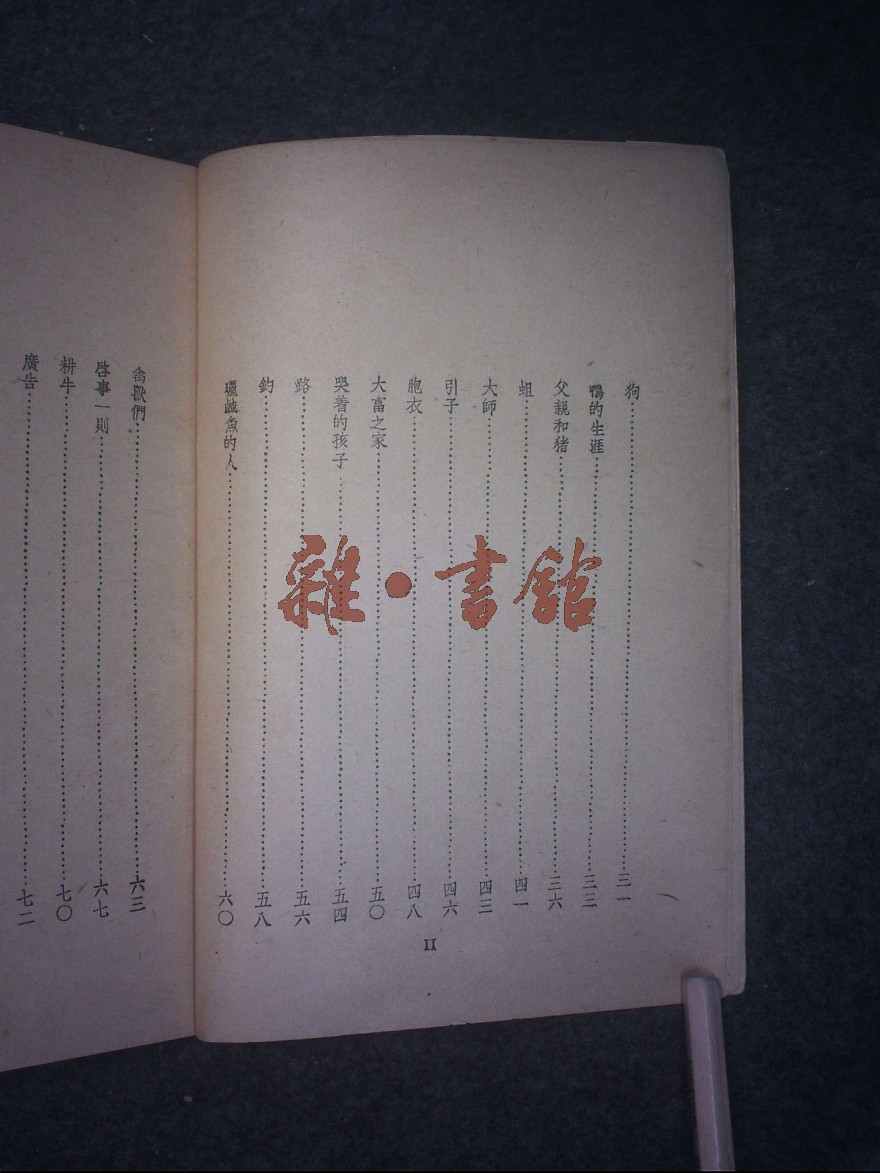 狗……三一
鴨的生涯……三三
父親和猪……三六
蛆……四一
大師……四三
引子……四六
胞衣……四八
大富之家……五〇
哭着的孩子……五四
路……五六
鈎……五八
曬鹹魚的人……六〇
II
禽獸們……六三
啓事一則……六七
耕牛……七〇
廣告……七二
雜·書館